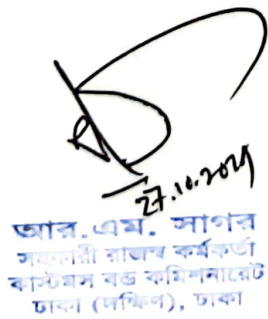 27.10.2024
আর.এম. সাগর
সহকারী রাজস্ব কর্মকর্তা
কাস্টমস বন্ড কমিশনারেট
ঢাকা (দক্ষিণ), ঢাকা